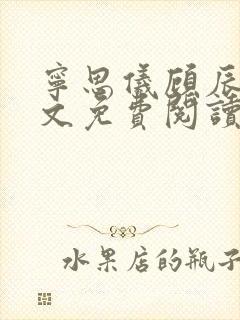 寧思儀顧辰
文免費閱讀
水果店的瓶子